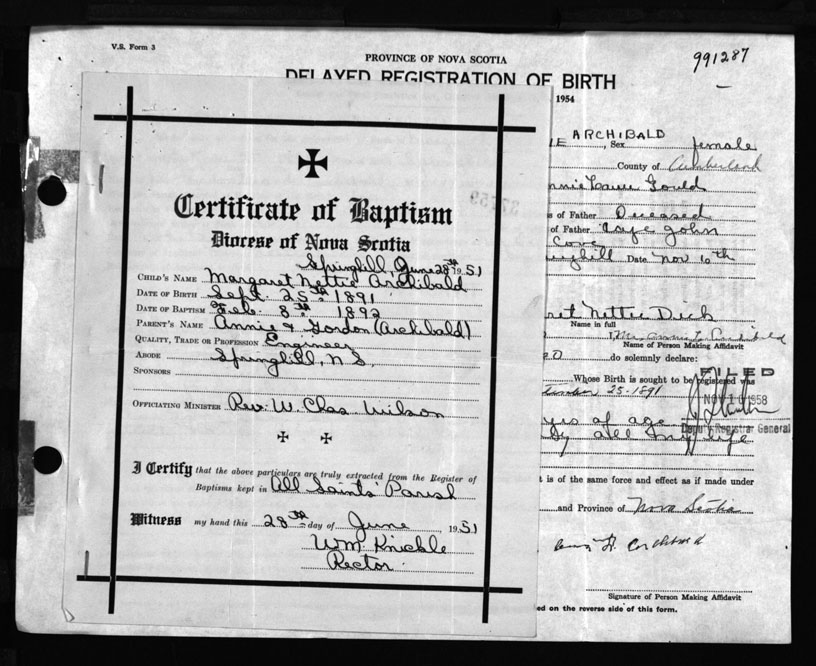 V.S. Form 3
PROVINCE OF NOVA SCOTIA
991287
DELAYED REGISTRATION OF BIRTH
1954
Certificate of Baptism
Diocese of Nova Scotia
Springhill, June 28th 1951
CHILD'S NAME Margaret Nettie Archibald
DATE OF BIRTH Sept. 25th 1891
DATE OF BAPTISM Feb. 8th 1892
PARENT'S NAME Annie & Gordon (Archibald)
QUALITY, TRADE OR PROFESSION Engineer
ABODE Springhill, N.S.
SPONSORS
OFFICIATING MINISTER Rev. W. Chas Wilson
I Certify that the above particulars are truly extracted from the Register of
Baptisms kept in All Saints' Parish
Witness my hand this 28th day of June 1951
Wm. Knickle
Rector
IE ARCHIBALD, Sex female
County of Cumberland
Gould
s of Father Deceased
of Father John
Cove
Date Nov 10th
ret Nettie Dick
Name in full
Name of Person Making Affidavit
do solemnly declare:
FILED
Whose Birth is sought to be registered was
25-1891
NOV 10 1958
Deputy Registrar General
yrs of age
all my life
t is of the same force and effect as if made under
and Province of Nova Scotia
Signature of Person Making Affidavit
ed on the reverse side of this form.